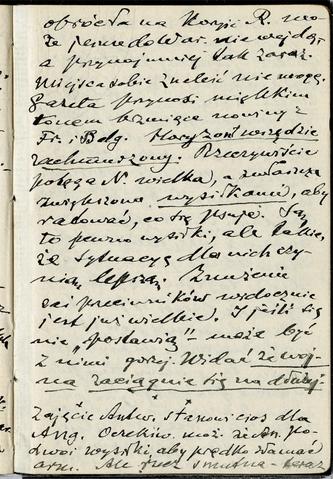 obróciła na Korzyść R. mo-
że jeszcze do War. nie wejdą,
a przynajmniej tak zaraz.
Miejsca sobie znaleść nie mogę.
Gazeta przynosi miękkim
tonem brzmiące nowiny z
Fr. i Belg. Horyzont wszędzie
zachmurzony. Rzeczywiście
potęga N. wielka, a zwłaszcza
zwiększona wysiłkami, aby
ratować, co się psuje. Są
to pewno wysiłki, ale takie,
że sytuacyę dla nich czy-
nią lepszą. Znużenie
zaś przeciwników widocznie
jest już wielkie. I jeśli się
nie „postawią” – może być
z nimi gorzej. Widać że woj-
na zaciągnie się na dłużej
Zajęcie Antw. stanowi coś dla
Ang. Oczekiw. może że on. po-
dwoi wysiłki, aby prędko złamać
arm. Ale rzecz smutna – teraz